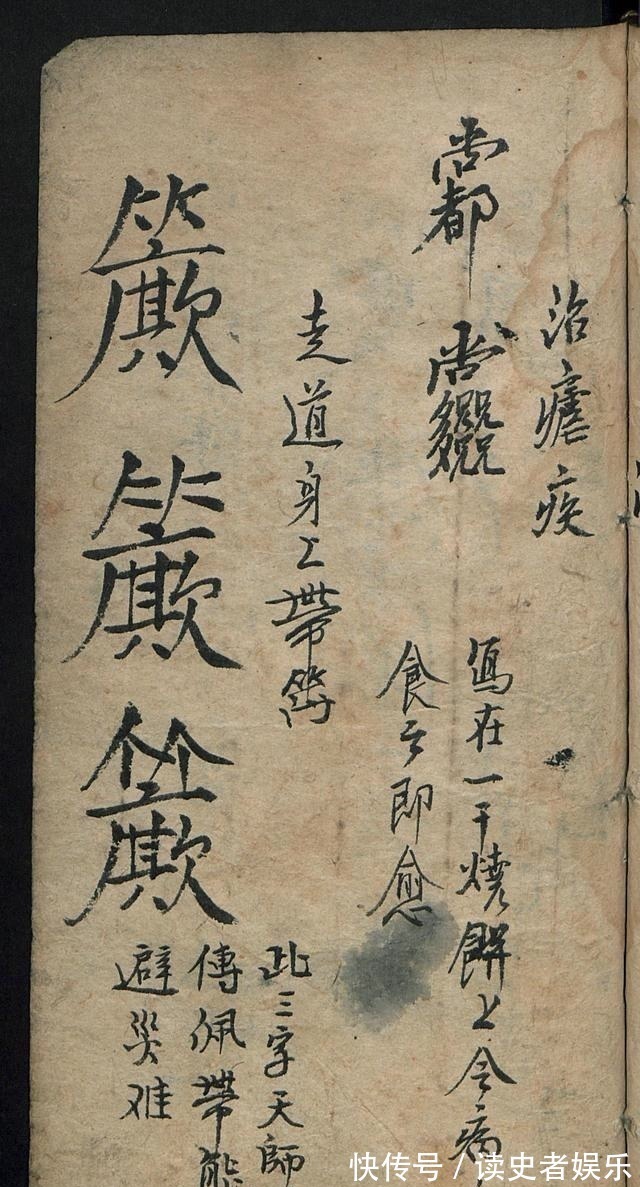 治瘧疾
寫在一干燒餅上令病
食之即愈
走道身上帶
此三字天師
傳佩帶能
避災难
快传号／读史者娱乐